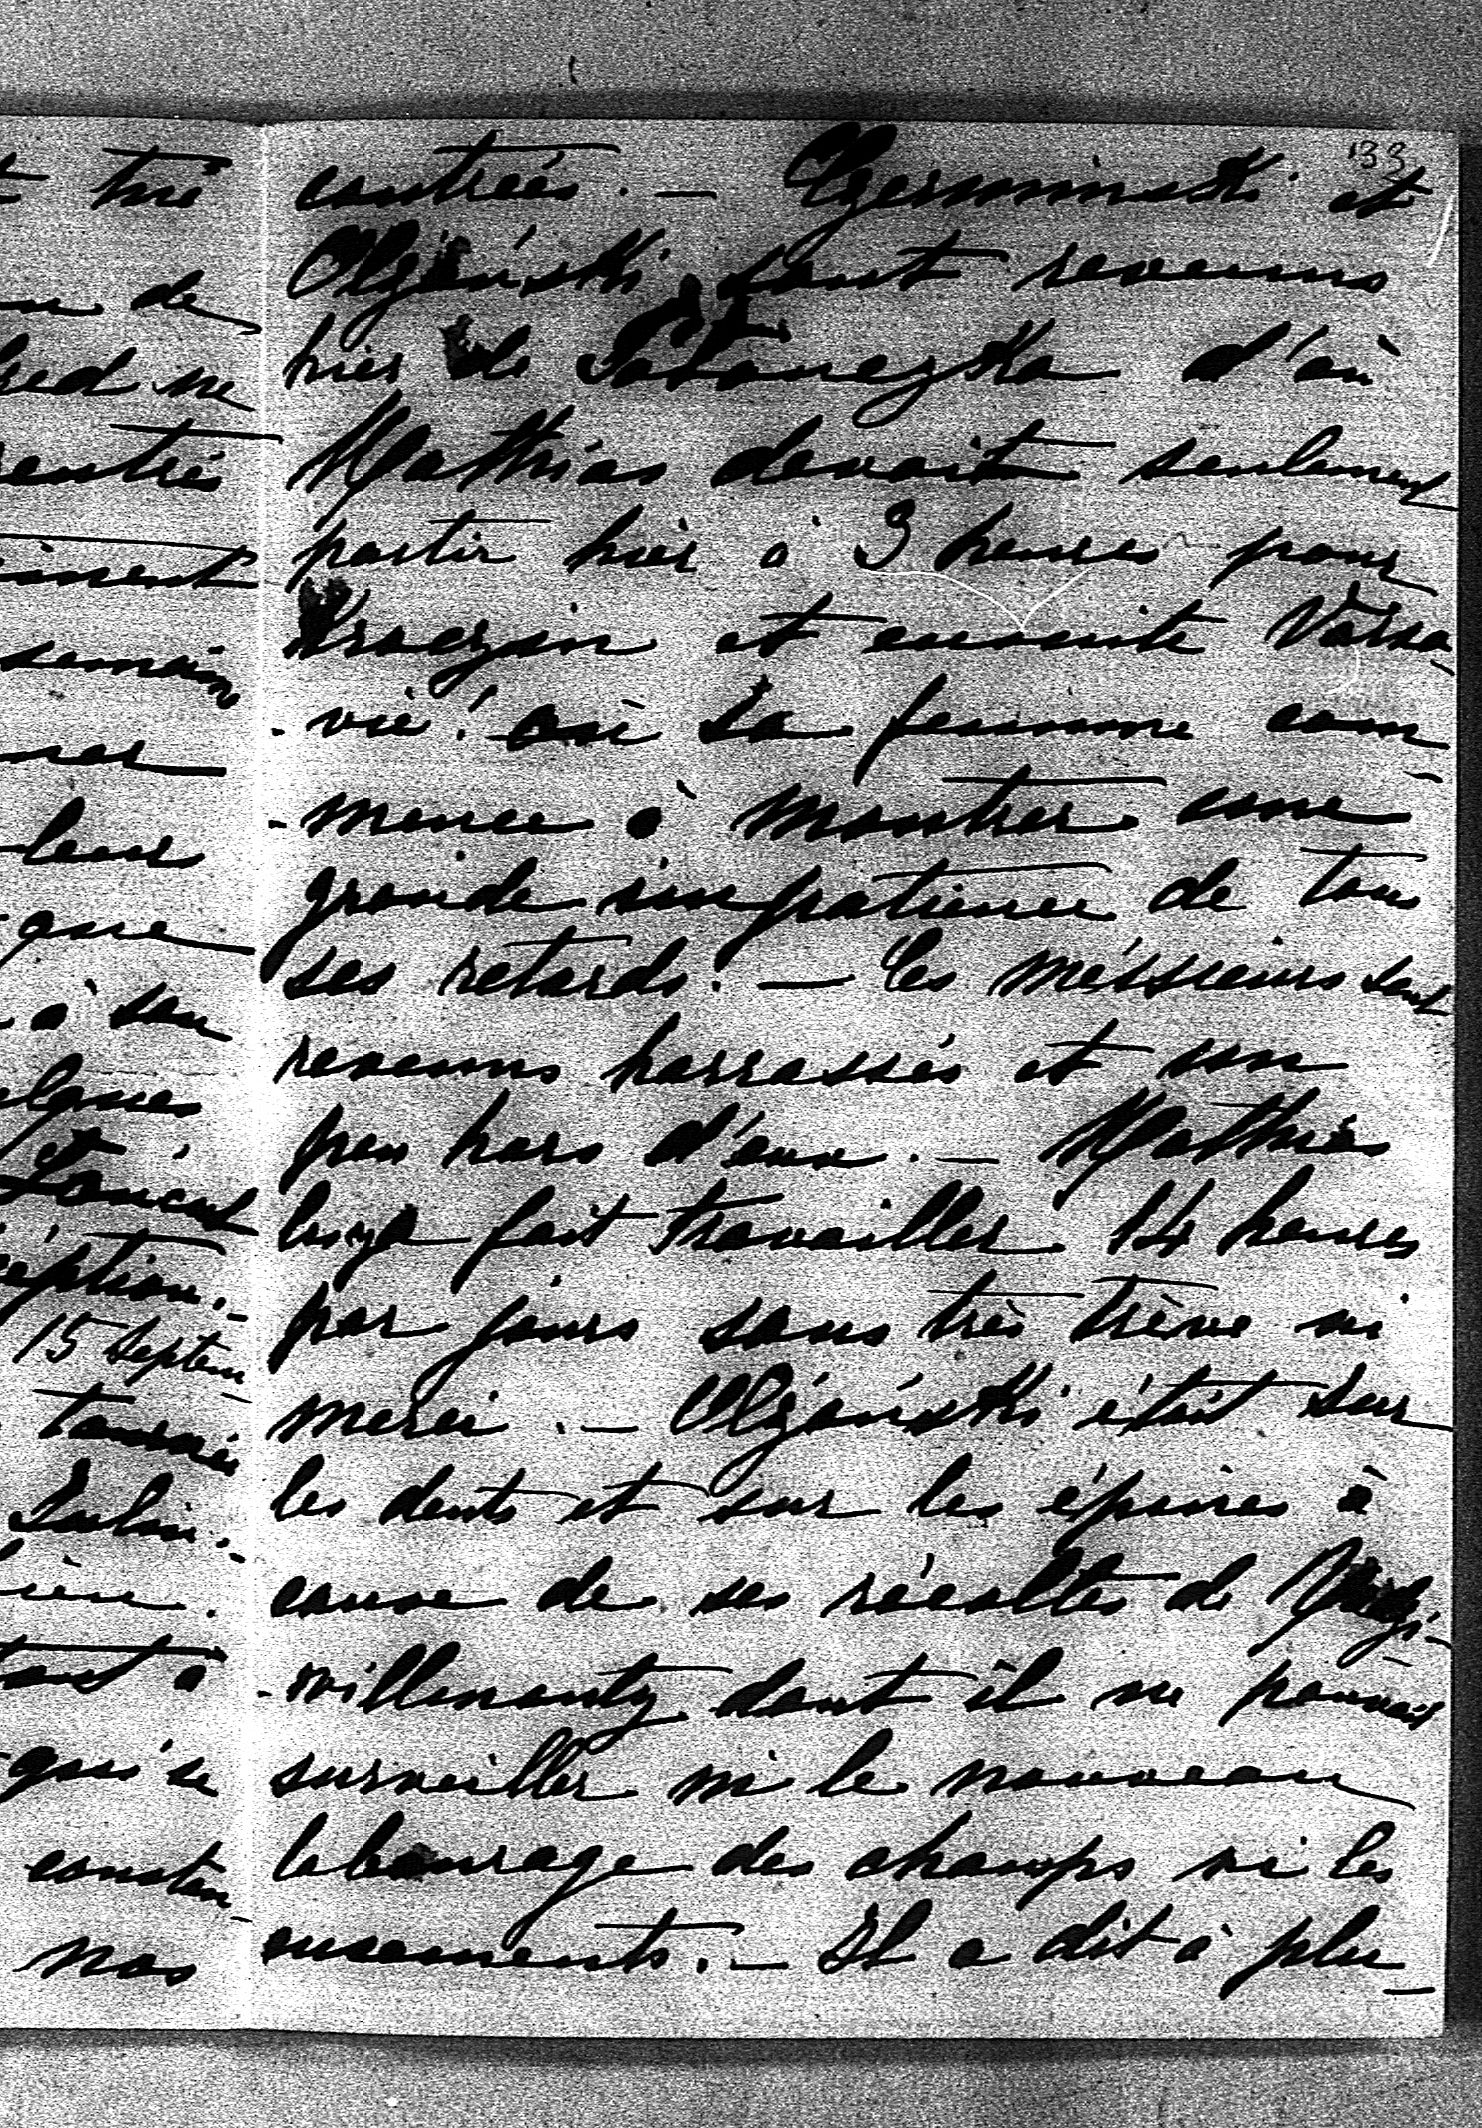 t tué
n de
red ne
rentrés
issent
semain
ner
leur
que
à son
elques
Lancut
ception.-
15 septem
tournée
Lublin.-
ière.
tant à
qui se
consten
nos
33
contrées. — Czerminski et
Olzánski sont revenus
hier de Potoczka d'où
Mathias devait seulement
partir hier à 3 heures pour
et ensuite Varso-
-vie! où sa femme com-
-mence à montrer une
grande impatience de tous
ses retards. — Ces méssieurs sont
revenus harrassés et un
peu hors d'eux. — Mathias
fait travailler 14 heures
par jours sans très trève ni
merci. — Olzánski était sur
les dents et sur les épines à
cause de ses récoltes de
dont il ne pouvait
surveiller ni le nouveau
labourage des champs ni les
ensements. — Il a dit à plu-